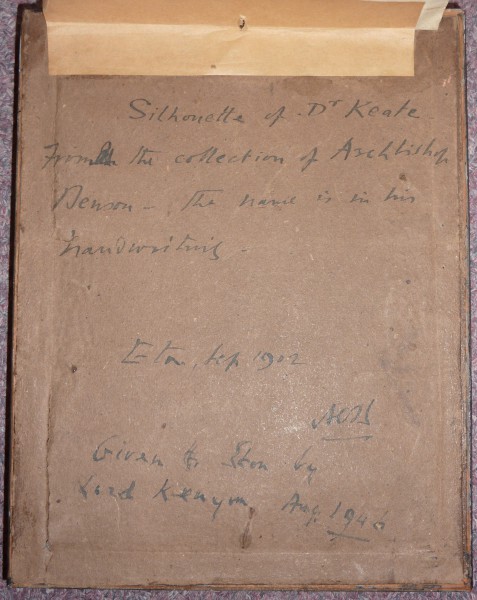 Silhouette of Dr Keate
From the collection of Archbishop
Benson – the name is in his
handwriting –
Eton, Sep 1902
ACB
Given to Eton by
Lord Kenyon Aug. 1946